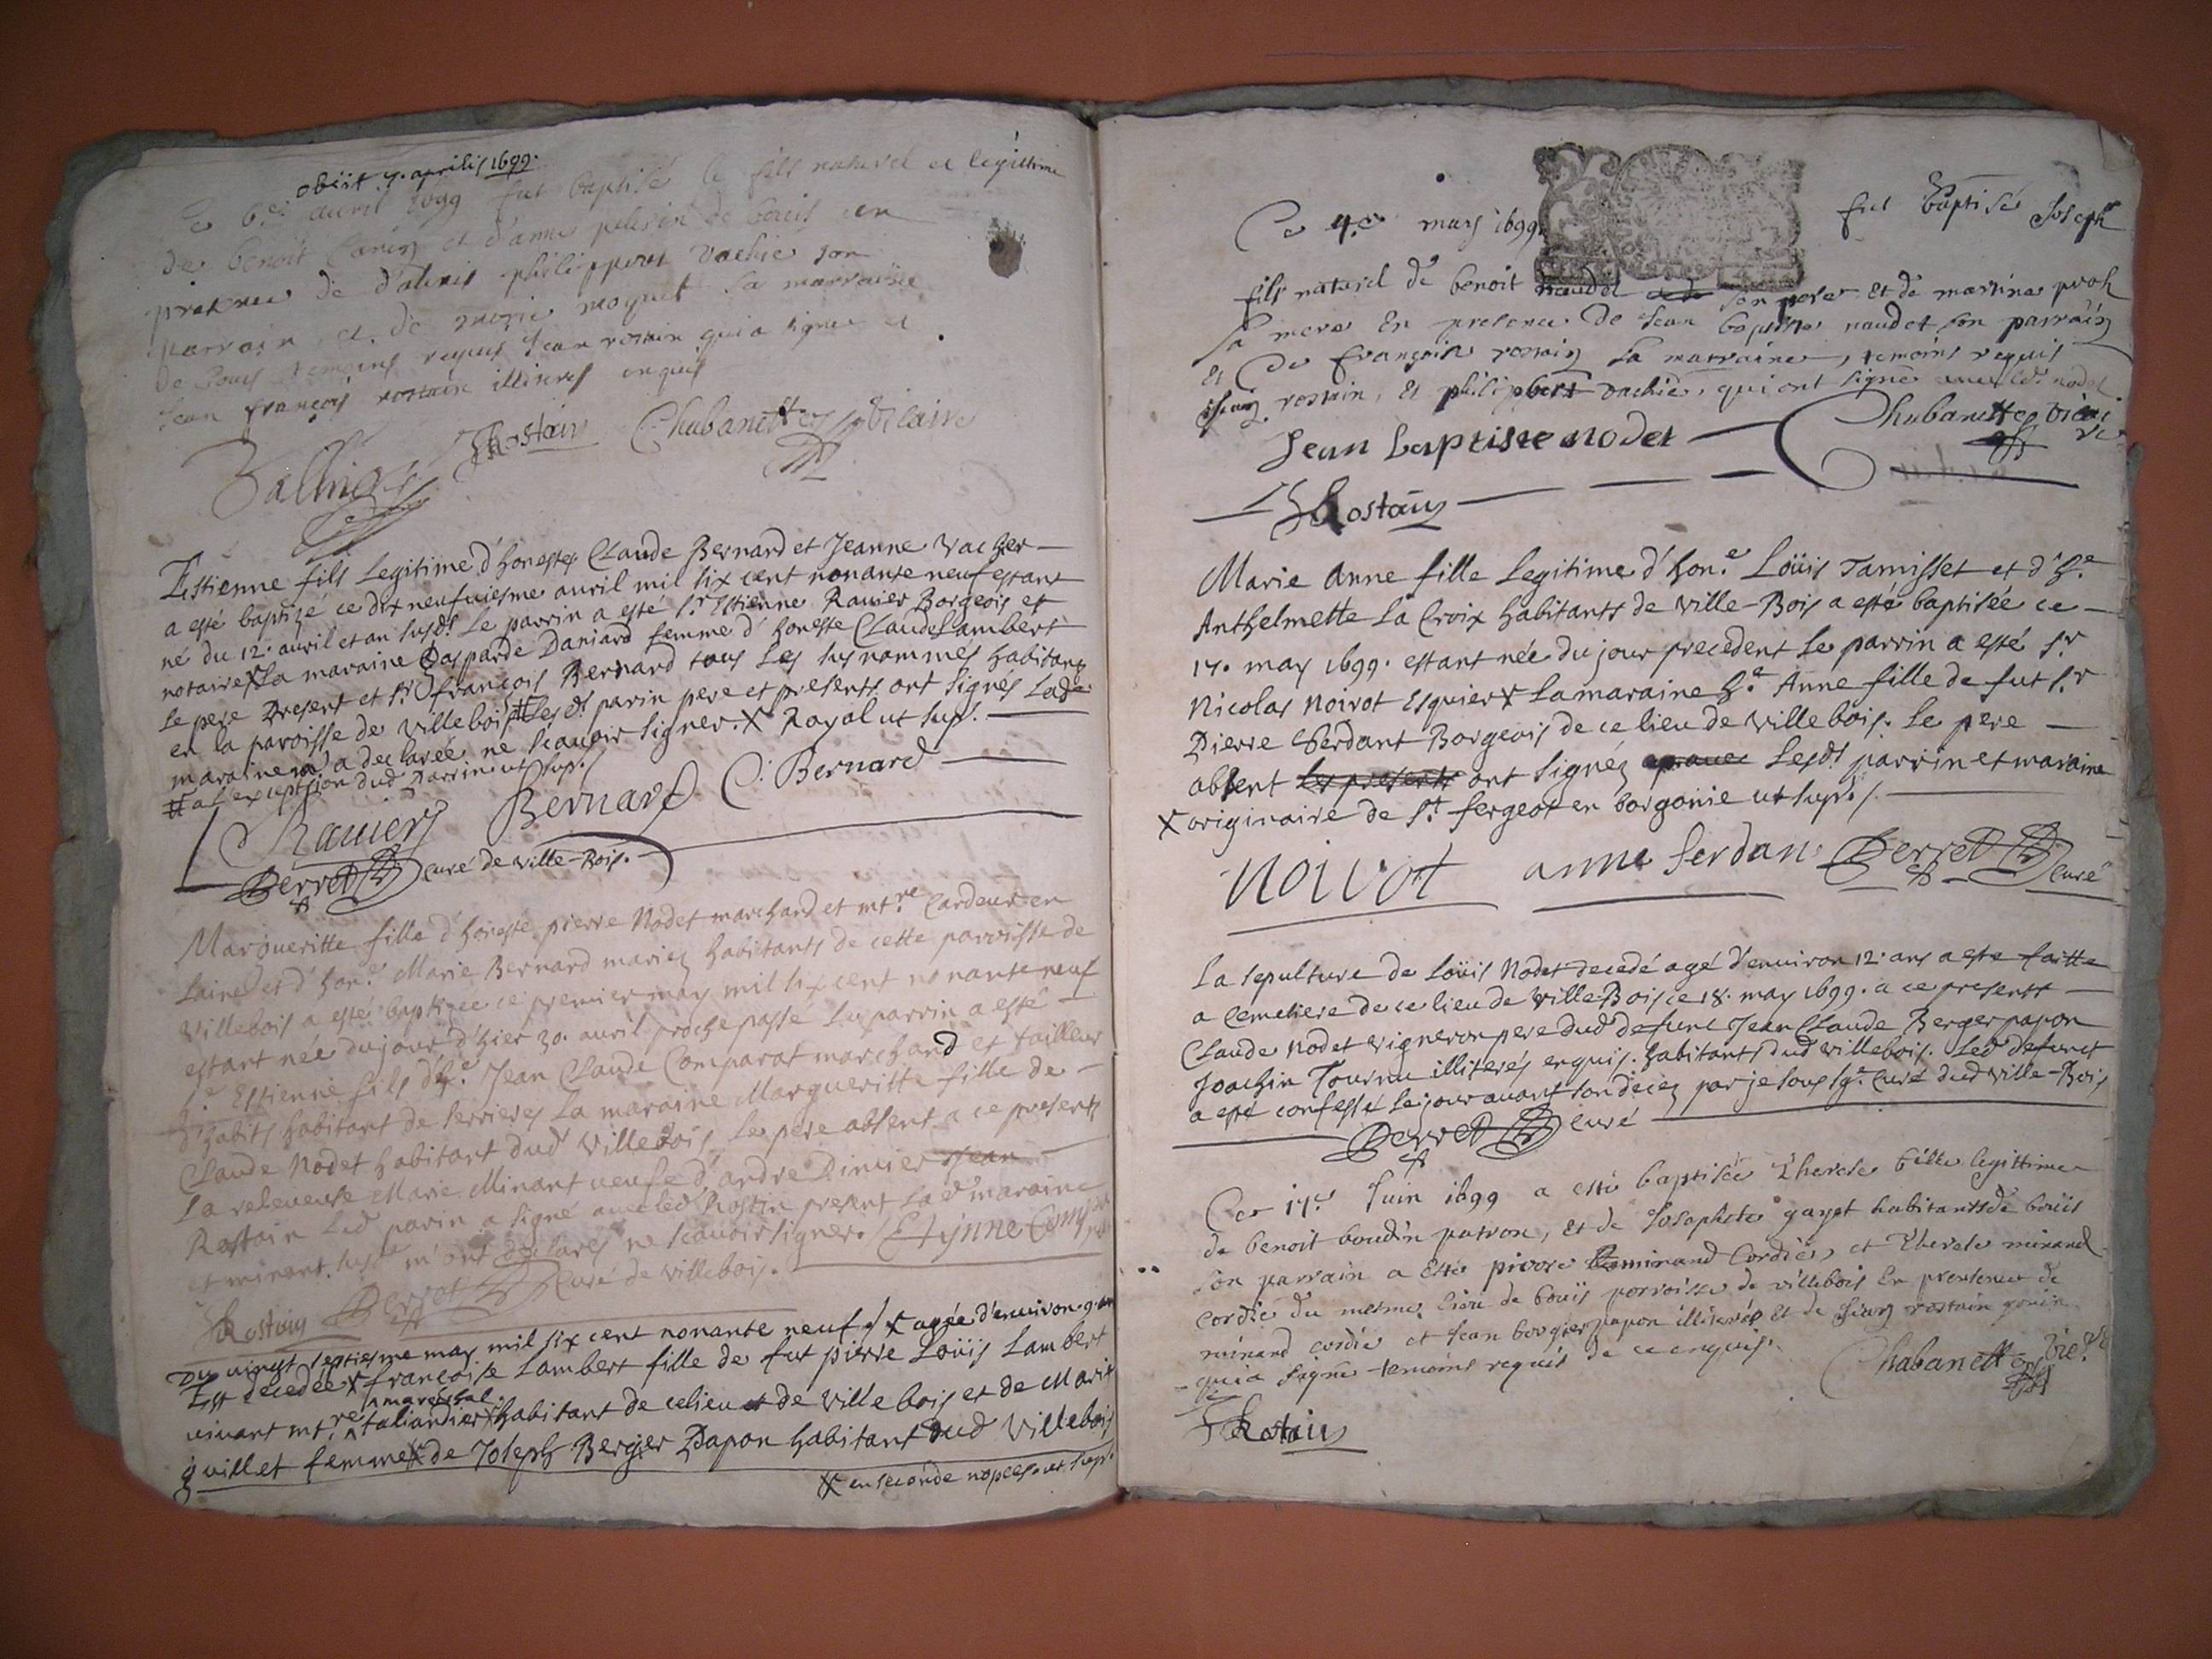 obiit 7. aprilis 1699.
Ce 6.e auril 1699 fut baptisé le fils naturel et legittime
de benoit et d'anne de bouis en
presence de philippert vachie son
parrain, et de moquet sa marraine
de bouis temoins requis Jean rostain qui a signe et
Jean françois rostain illiteres enquis
Rostain Chabanette vicaire
Estienne fils Legitime d'honestes Claude Bernard et Jeanne Vacher
a esté baptizé ce dix neufuiesme auril mil six cent nonante neuf estant
né du 12. auril et an susd.t Le parrin a esté s.r Estienne Rauier Borgeois et
notaire X La maraine Gasparde Daniard femme d'honeste Claude Lambert
Le pere present et s.r françois Bernard tous Les susnommes habitans
en la paroisse de Villebois # Lesd.ts parin pere et presents ont signés Lad.e
maraine a declarée ne scauoir signer. X Royal ut sup.
# a l'exception dud parrin ut sup./
Rauier Bernard C. Bernard
Perret curé de Ville-Bois.
Margueritte fille d'honeste pierre Nodet marchand et mt.re Cardeur en
Laine et d'hon.e Marie Bernard mariez habitants de cette parroisse de
Villebois a esté baptizee ce premier may mil six cent nonante neuf
estant née du jour d'hier 30. auril proche passé Le parrin a esté
s.r Estienne fils d'h.e Jean Claude Comparat marchand et tailleur
d'habits habitant de Serrieres La maraine Margueritte fille de
Claude Nodet habitant dud Villebois, Le pere absent a ce presents
La releueuse Marie Minant ueufe d'andre Dimier Jean
Rostain Led parin a signé auec led Rostin present Lad maraine
et minant susd m'ont declarés ne scauoir signer. / Etynne Comparat
Rostain Perret Curé de Villebois.
Du uingt septiesme may mil six cent nonante neuf / X agée d'enuiron 9. ans
Est decedée X françoise Lambert fille de fut pierre Loüis Lambert
mareschal
uiuant mt.re taliandier habitant de ce lieu de Ville bois et de Marie
guillet femme X de Joseph Berger Papon habitant dud Villebois
X en seconde nopces. ut sup.
Ce 4.e mars 1699 fut baptisé Joseph
fils naturel de benoit naudet son pere Et de martine proh
sa mere En presence De Jean baptiste naudet son parrain
Et De françoise rostain sa marraine, temoins requis
Jean rostain, Et philippert vachié, qui ont signé auec led. nodet
Jean baptiste nodet Chabanette vicaire
Rostain
Marie Anne fille Legitime d'hon.e Loüis Tamisset et d'h.e
Anthelmette La Croix habitants de Ville-Bois a esté baptisée ce
17. may 1699. estant née du jour precedent Le parrin a esté s.r
Nicolas Noirot Esquier X La maraine h.e Anne fille de fut s.r
Pierre Serdant Borgeois de ce lieu de Villebois. Le pere
absent les presents ont signéz auec Lesd.ts parrin et maraine
X originaire de s.t fergeot en borgonie ut sup. /
Noirot anne serdan Perret Curé
La sepulture de Loüis Nodet decedé agé d'enuiron 12. ans a este faitte
a Cemetiere de ce lieu de Ville-Bois ce 18. may 1699. a ce presents
Claude Nodet Vigneron pere dud defunc Jean Claude Berger papon
Joachin Tournu illiterés enquis. habitants dud Villebois. Led defunct
a esté confessé Le jour auant son décez par je sous sg.é Curé dud Ville-Bois
Perret Curé
Ce 17.e Juin 1699 a esté baptisée Therese fille legittime
de benoit boudin patron, Et de Josephete gayet habitants de bouis
Son parrain a esté pierre minand Cordié, et Therese minand
cordie du mesme lieu de bouis parroisse de villebois En presence de
minand cordié et Jean bergier papon illiteres Et de Jean rostain
qui a signé temoins requis de ce enquis.
Chabanette vic.re
Rostain